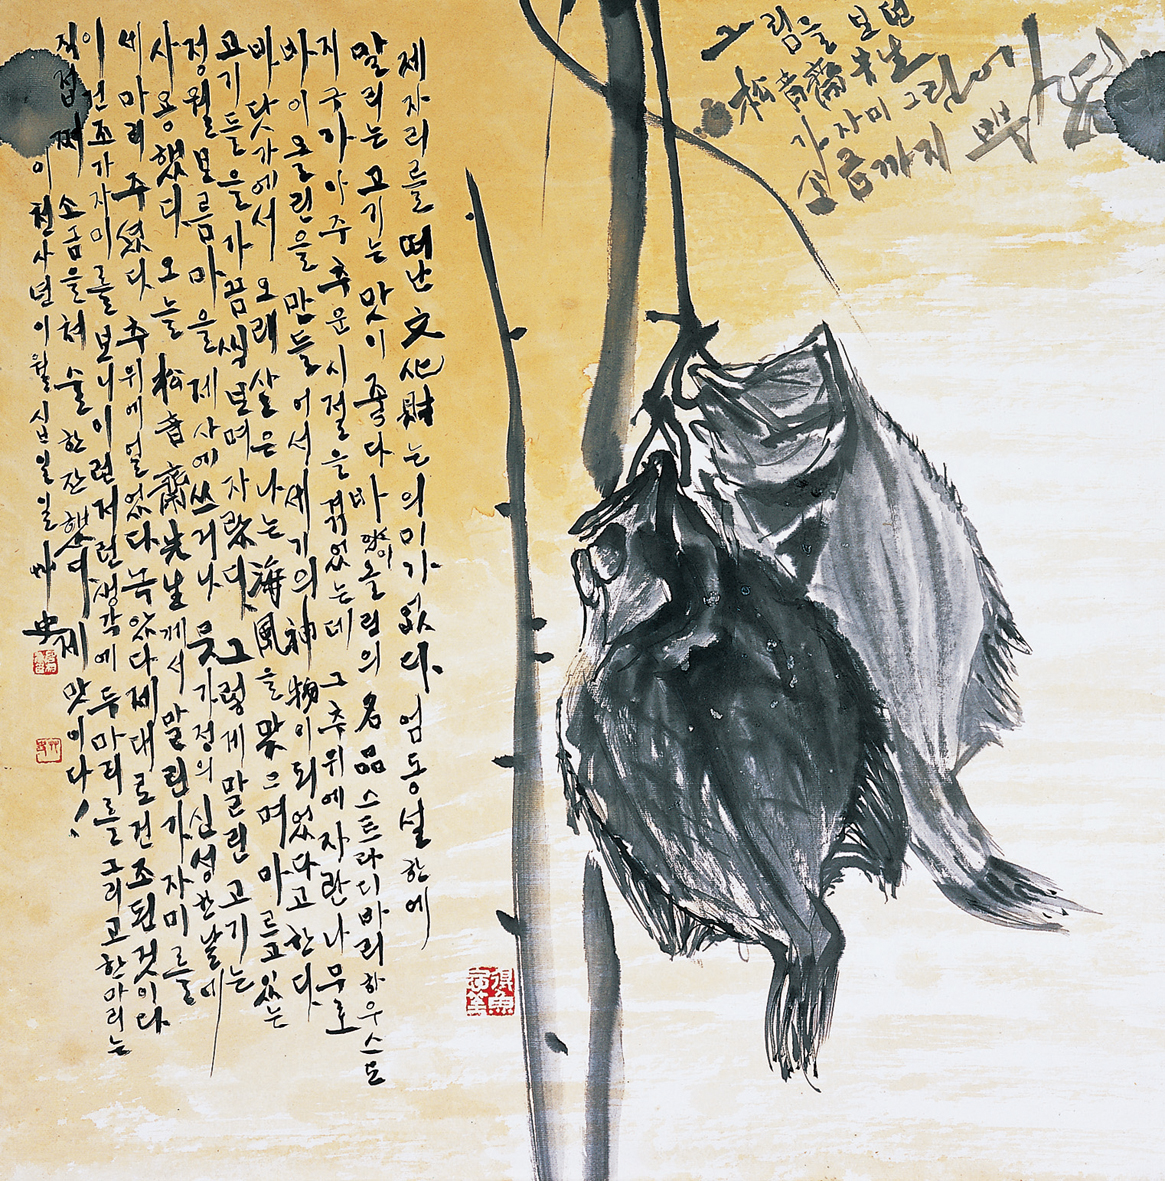 그림을 보던
松音齋先生
가자미
소금까지
제자리를 떠난 文化財는 의미가 없다. 엄동설한에
말리는 고기는 맛이 좋다 바이올린의 名品 스트라디바리하우스도
지구가 아주 추운 시절을 겪었는데 그 추위에 자란 나무로
바이올린을 만들어서 세기의 神物이 되었다고 한다.
바닷가에서 오래 살은 나는 海風을 맞으며 마르고 있는
고기들을 가끔씩 보며 자랐다. 그렇게 말린 고기는
정월보름 마을제사에 쓰거나 뭇가정의 신성한 날에
사용했다 오늘 松音齋先生께서 말린 가자미를
세마리 주셨다 추위에 얼었다 녹았다 제대로 건조된 것이다
이 건조가자미를 보니 이런저런 생각에 두마리를 그리고 한마리는
직접 쪄 소금을 쳐 술 한잔 했다 제 맛이다!
이천사년이월